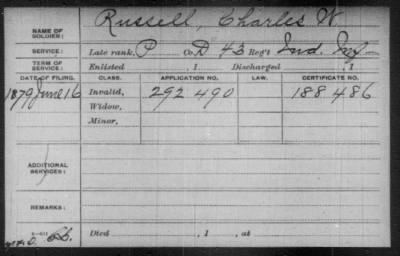 NAME OF SOLDIER: Russell, Charles W.
SERVICE: Late rank, P Co. D 43 Reg't Ind. Inf
TERM OF SERVICE: Enlisted , 1 Discharged , 1
DATE OF FILING. CLASS. APPLICATION NO. LAW. CERTIFICATE NO.
1879 June 16 Invalid, 292 490 188 486
Widow,
Minor,
ADDITIONAL SERVICES:
REMARKS:
Died , 1 , at